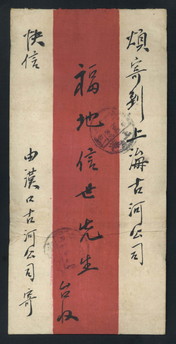 煩寄到上海古河公司
福地信世先生台收
快信
由漢口古河公司寄